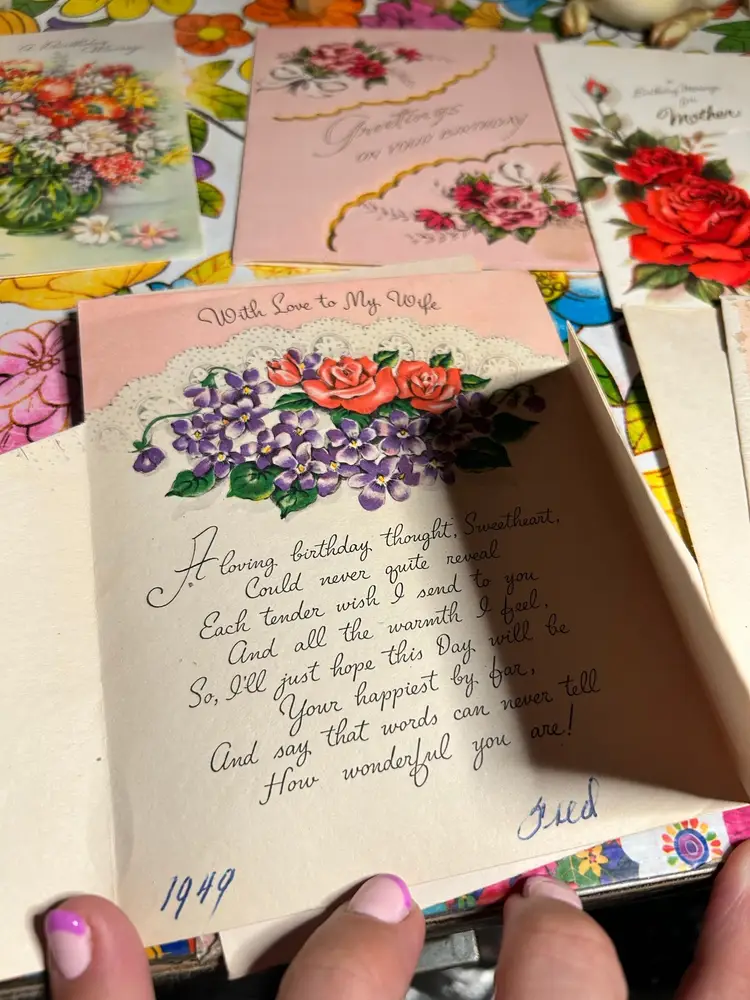 A Birthday
Greetings
ON YOUR BIRTHDAY
Birthday Message
for
Mother
With Love to My Wife
A loving birthday thought, Sweetheart,
Could never quite reveal
Each tender wish I send to you
And all the warmth I feel,
So, I'll just hope this Day will be
Your happiest by far,
And say that words can never tell
How wonderful you are!
Fred
1949